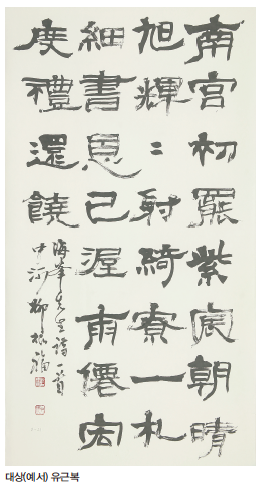 南宮初罷紫宸朝晴
旭輝〻射綺寮一札
細書恩已渥甫僊宏
度禮還饒
海峯先生詩一首
中河 柳根福
대상(예서) 유근복